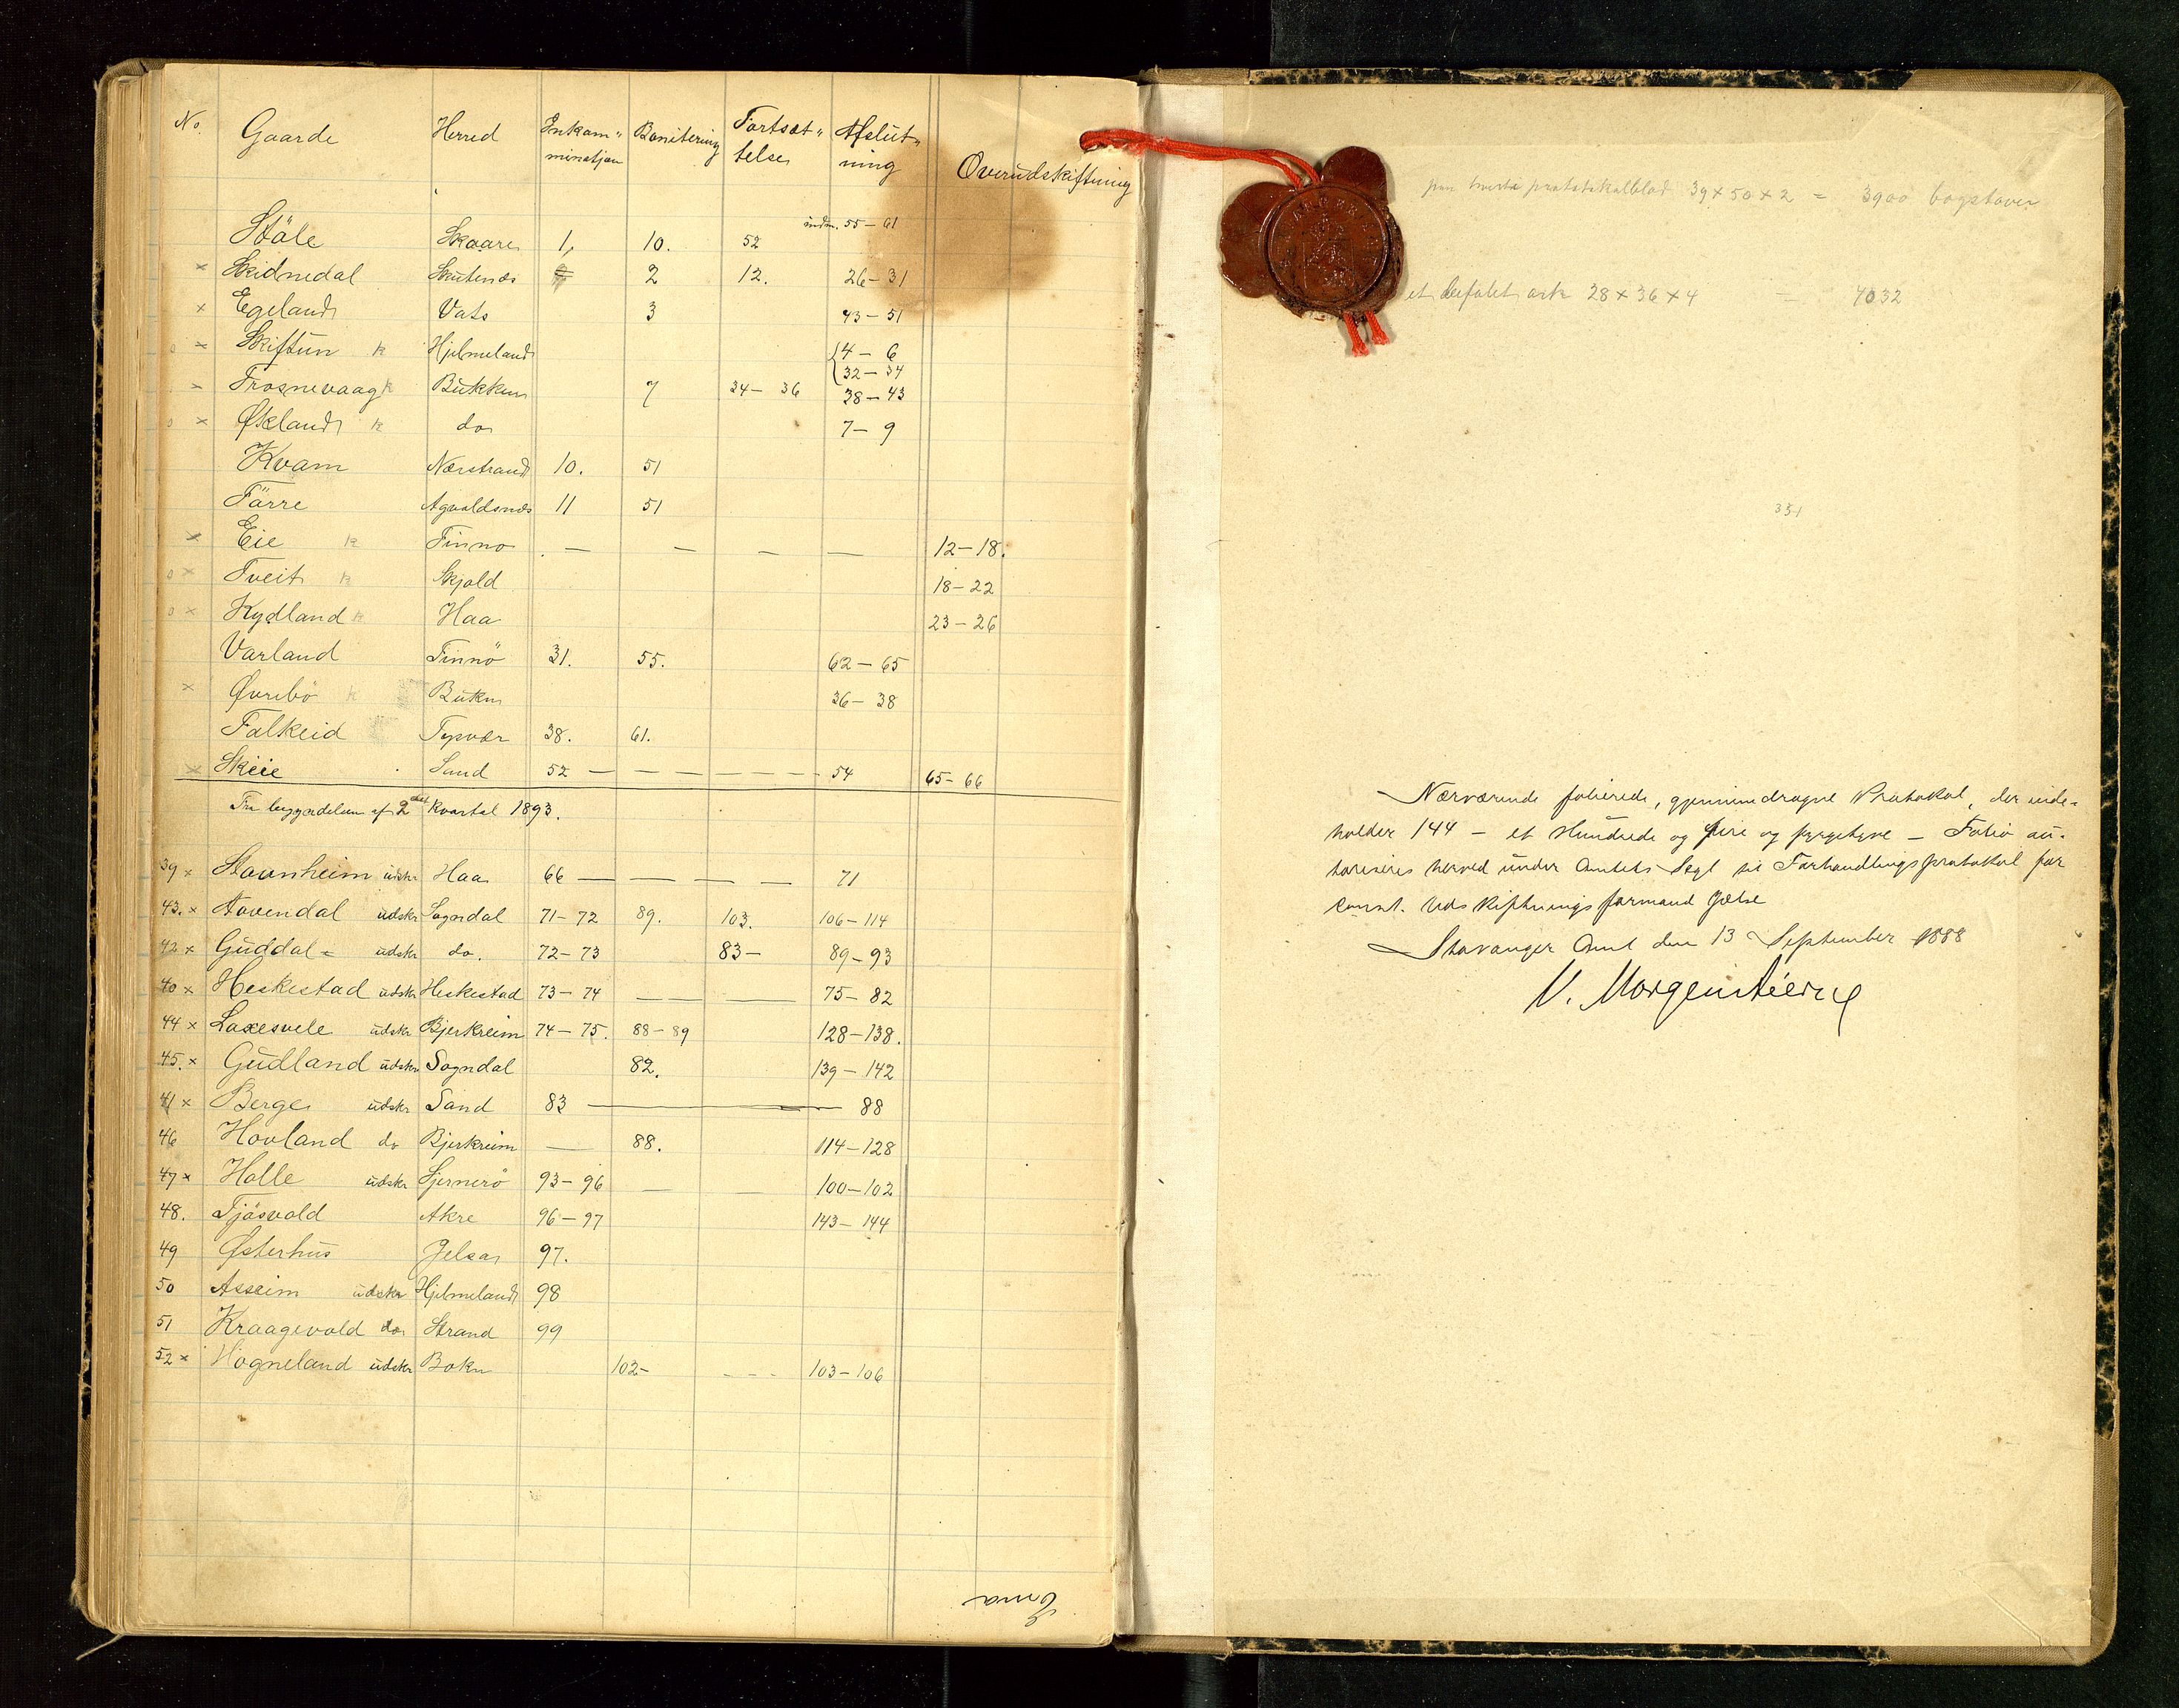 No. Gaarde Herred Inkam- minatjon Bonitering Fortsæt- telse Afslut- ning Overudskiftning
Stöle Skaare 1, 10. 52 indm. 55-61
× Skidnedal Skutenæs 2 12. 26-31
× Egeland Vats 3 43-51
o × Skiftun k Hjelmeland {4-6
{32-34
× Trosnevaag k Bukken 7 34-36 38-43
o × Økland k do 7-9
Kvam Nærstrand 10. 51
Förre Agvaldsnæs 11 51
× Eie k Finnö . — — — — 12-18.
o × Tveit k Skjold 18-22
o × Kydland k Haa 23-26
Varland Finnö 31. 55. 62-65
× Øvrebö k Bukn 36-38
Falkeid Tysvær 38. 61.
× Skeie Sand 52 — — — — — — 54 65-66
Fra begyndelsen af 2det kvartal 1893.
39 × Stavnheim udskr Haa 66 — — — — 71
43. × Aavendal udskr Sogndal 71-72 89. 103. 106-114
42 × Guddal = udskr do. 72-73 83- 89-93
40 × Heskestad udskr Heskestad 73-74 — — 75-82
44 × Laxesvele udskr Bjerkreim 74-75. 88-89 128-138.
45. × Gudland udskr Sogndal 82. 139-142
41 × Berge udskr Sand 83 — 88
46 Hovland do Bjerkreim — 88. 114-128
47 × Halle udskr Sjernerö 93-96 — — 100-102
48. Tjösvold Akre 96-97 143-144
49 Østerhus Jelsa 97.
50 Asseim udskr Hjelmeland 98
51 Kraagevold do Strand 99
52 × Hogneland udskr Bokn 102- - - - 103-106
Erna
pr. hvert protokolblad 39×50×2 = 3900 bogstaver
et befalet ark 28×36×4 = 4032
351
Nærværende folierede, gjennemdragne Protokol, der inde-
holder 144 – et Hundrede og fire og fyrgetyve – Folio au-
toriseres herved under Amtets Segl til Forhandlingsprotokol for
const. Udskiftningsformand Jælse
Stavanger Amt den 13 September 1888
V. Morgenstierne